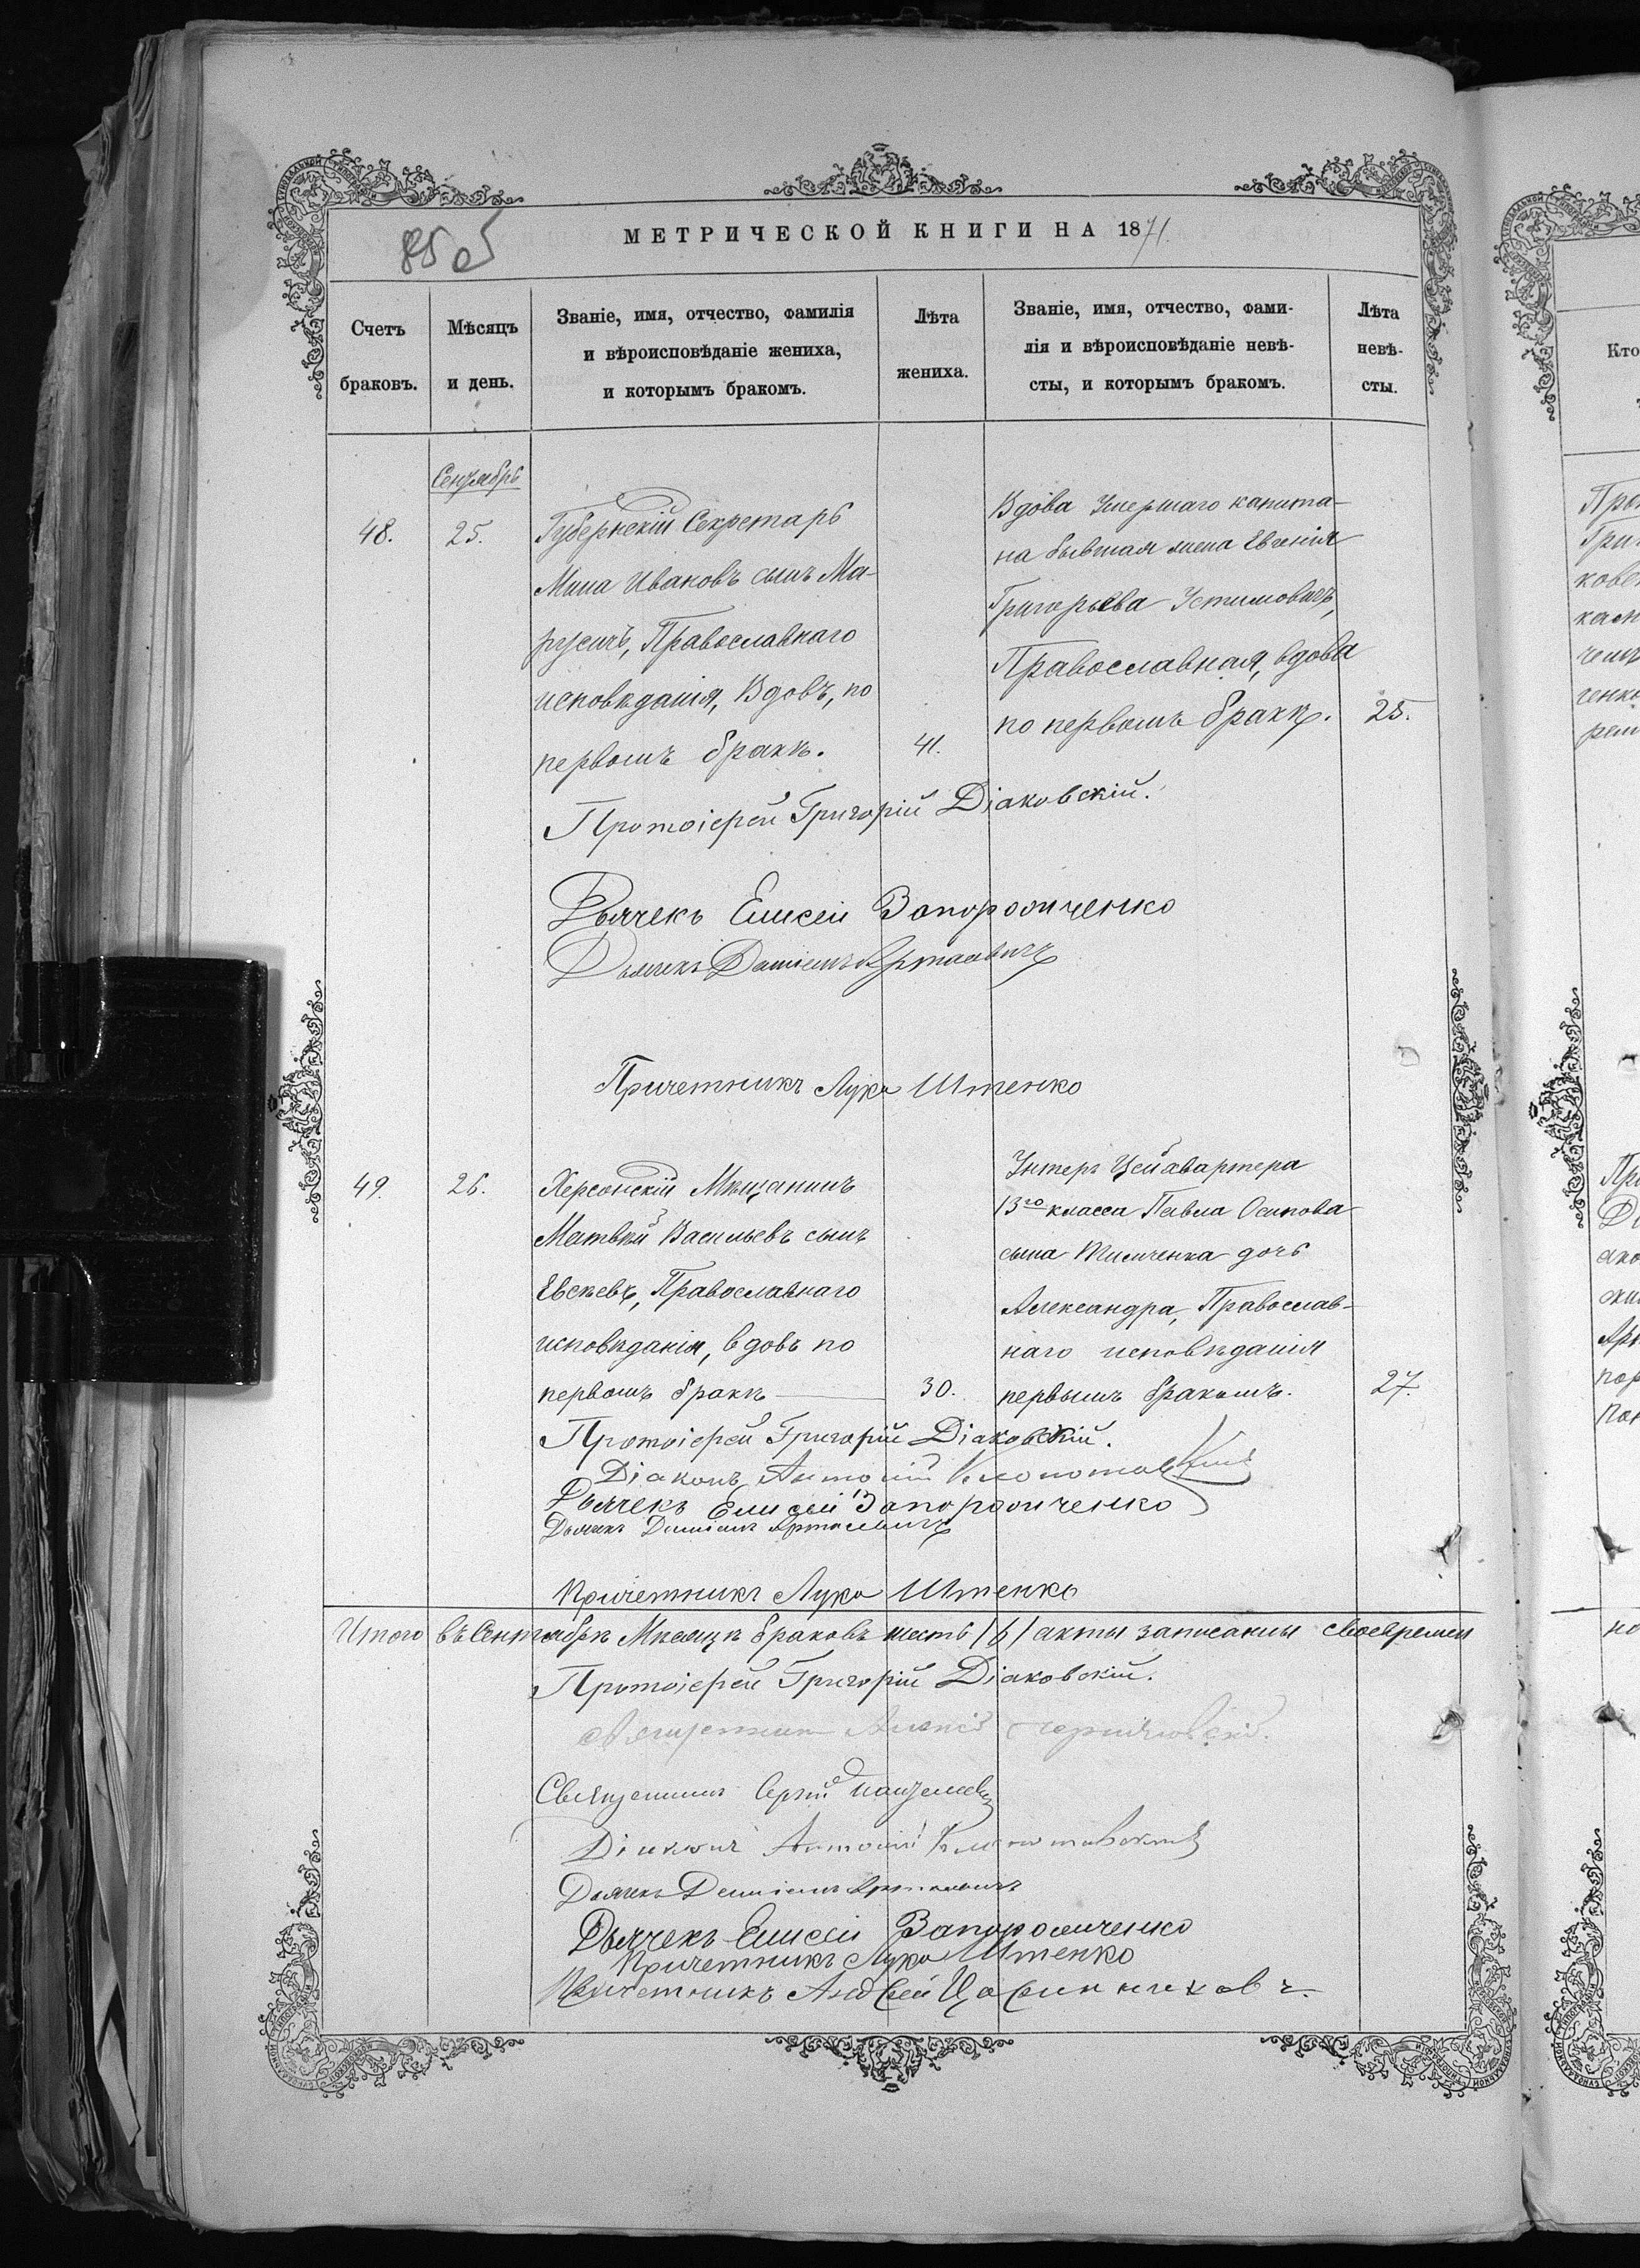 МЕТРИЧЕСКОЙ КНИГИ НА 1871.
Счетъ браковъ.
Мѣсяцъ и день.
Званіе, имя, отчество, фамилія
и вѣроисповѣданіе жениха,
и которымъ бракомъ.
Лѣта жениха.
Званіе, имя, отчество, фами-
лія и вѣроисповѣданіе невѣ-
сты, и которымъ бракомъ.
Лѣта невѣ-
сты.
Сентябрь
48.
25.
Губернскій Секретарь
Мина Ивановъ сынъ Ма-
русичъ, Православнаго
исповѣданія, Вдовъ, по
первомъ бракѣ.
41.
Вдова Умершаго капита-
на бывшая жена Евгенія
Григорьева Устимовичъ,
Православная, вдова
по первомъ бракѣ.
25.
Протоіерей Григорій Діаковскій.
Дьячекъ Елисей Запорожченко
Дьячекъ Даміанъ Артасевичъ
Причетникъ Лука Ительно
49.
26.
Херсонскій Мѣщанинъ
Матвѣй Васильевъ сынъ
Евсѣевъ, Православнаго
исповѣданія, вдовъ по
первомъ бракѣ
30.
Унтеръ Цейхвартера
13го класса Павла Осипова
сына Тимченка дочь
Александра, Православ-
наго исповѣданія
первымъ бракомъ.
27.
Протоіерей Григорій Діаковскій.
Діаконъ Антоній Клопотовскій
Дьячекъ Елисей Запорожченко
Дьячекъ Даміанъ
Причетникъ Лука
Итого въ Сентябрѣ Мѣсяцѣ браковъ шесть /6/ акты записаны своевремен
Протоіерей Григорій Діаковскій.
Священникъ Алексій
Священникъ Сергій
Діаконъ Антоній Клопотовскій
Дьячекъ Даміанъ
Дьячекъ Елисей Запорожченко
Причетникъ Лука
Причетникъ Андрей